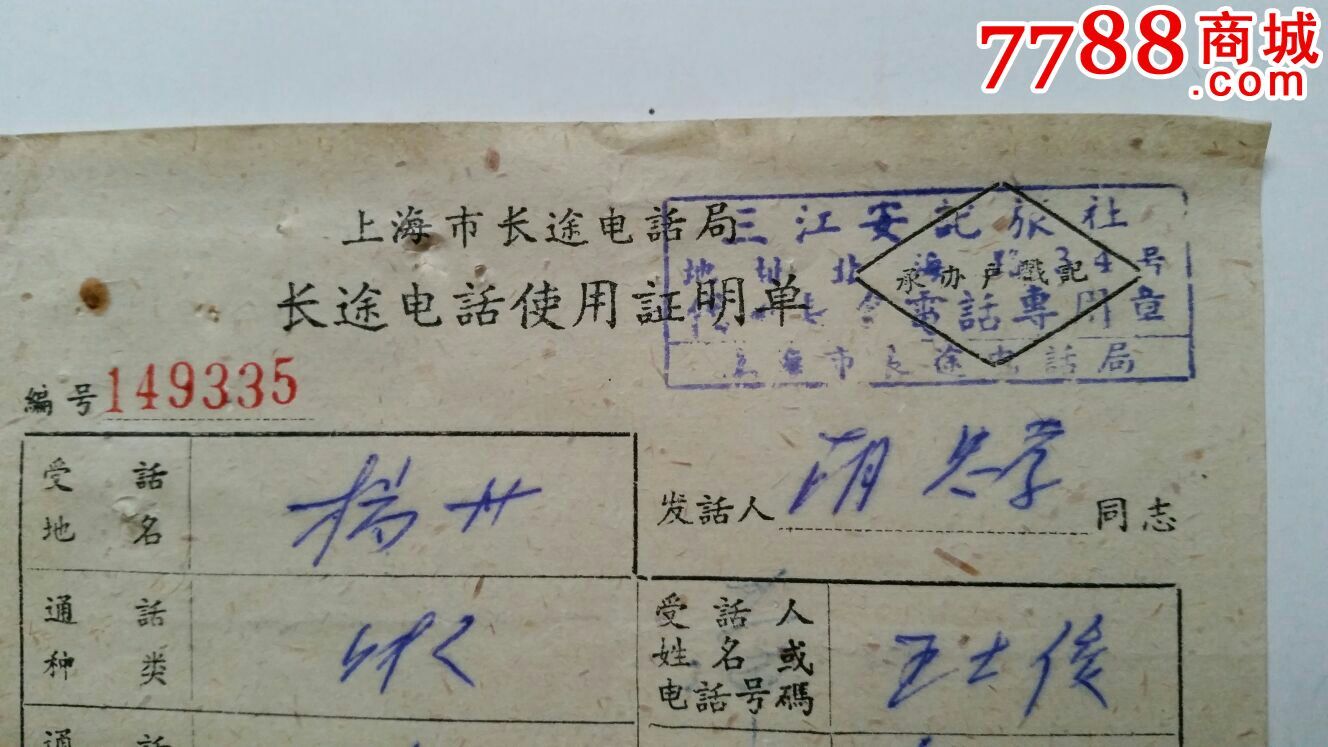 7788商城
.com
上海市长途电話局
长途电話使用証明单
三江安記旅社
承办户戳記
話專用章
上海市长途电話局
編号149335
受話地名
揚州
发話人 同志
通話种类
叫人
受話人
姓名或
电話号碼
王士俊
通話